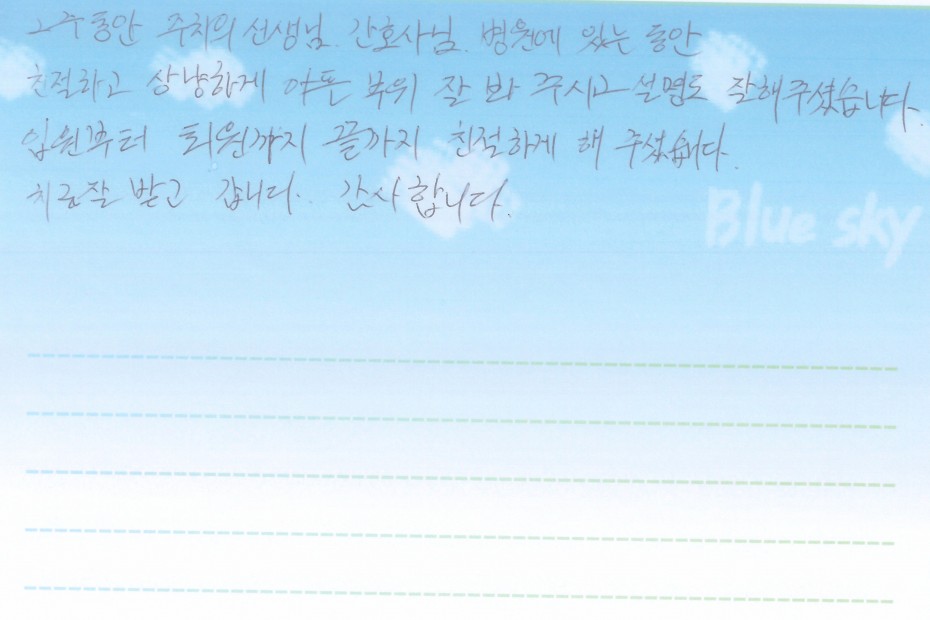 2주 동안 주치의 선생님. 간호사님. 병원에 있는 동안
친절하고 상냥하게 아픈 부위 잘 봐 주시고 설명도 잘해주셨습니다.
입원부터 퇴원까지 끝까지 친절하게 해 주셨습니다.
치료잘 받고 갑니다. 감사합니다.
Blue sky